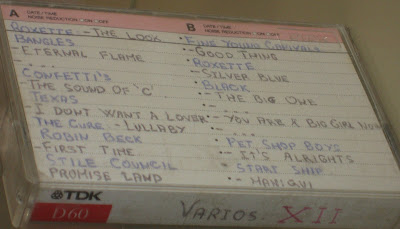 A DATE/TIME
NOISE REDUCTION ON OFF
B DATE/TIME
NOISE REDUCTION ON OFF
ROXETTE - THE LOOK
BANGLES
- ETERNAL FLAME
- ...
CONFETTI'S
- THE SOUND OF 'C'
TEXAS
- I DONT WANT A LOVER
THE CURE - LULLABY
ROBIN BECK
- FIRST TIME
STILE COUNCIL
- PROMISE LAND
FINE YOUNG CANIVALS
- GOOD THING
ROXETTE
- SILVER BLUE
BLACK
- THE BIG ONE
- ...
- YOU ARE A BIG GIRL NOW
- ...
PET SHOP BOYS
- IT'S ALRIGHTS
START SHIP
TDK
D60
VARIOS: XII